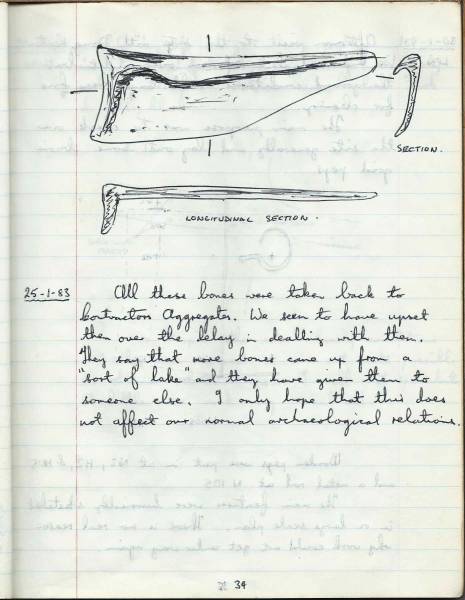 SECTION.
LONGITUDINAL SECTION.
25-1-83 All these bones were taken back to
Contractors Aggregates. We seem to have upset
them over the delay in dealling with them.
They say that more bones came up from a
"sort of lake" and they have given them to
someone else. I only hope that this does
not affect our normal archaeological relations.
34